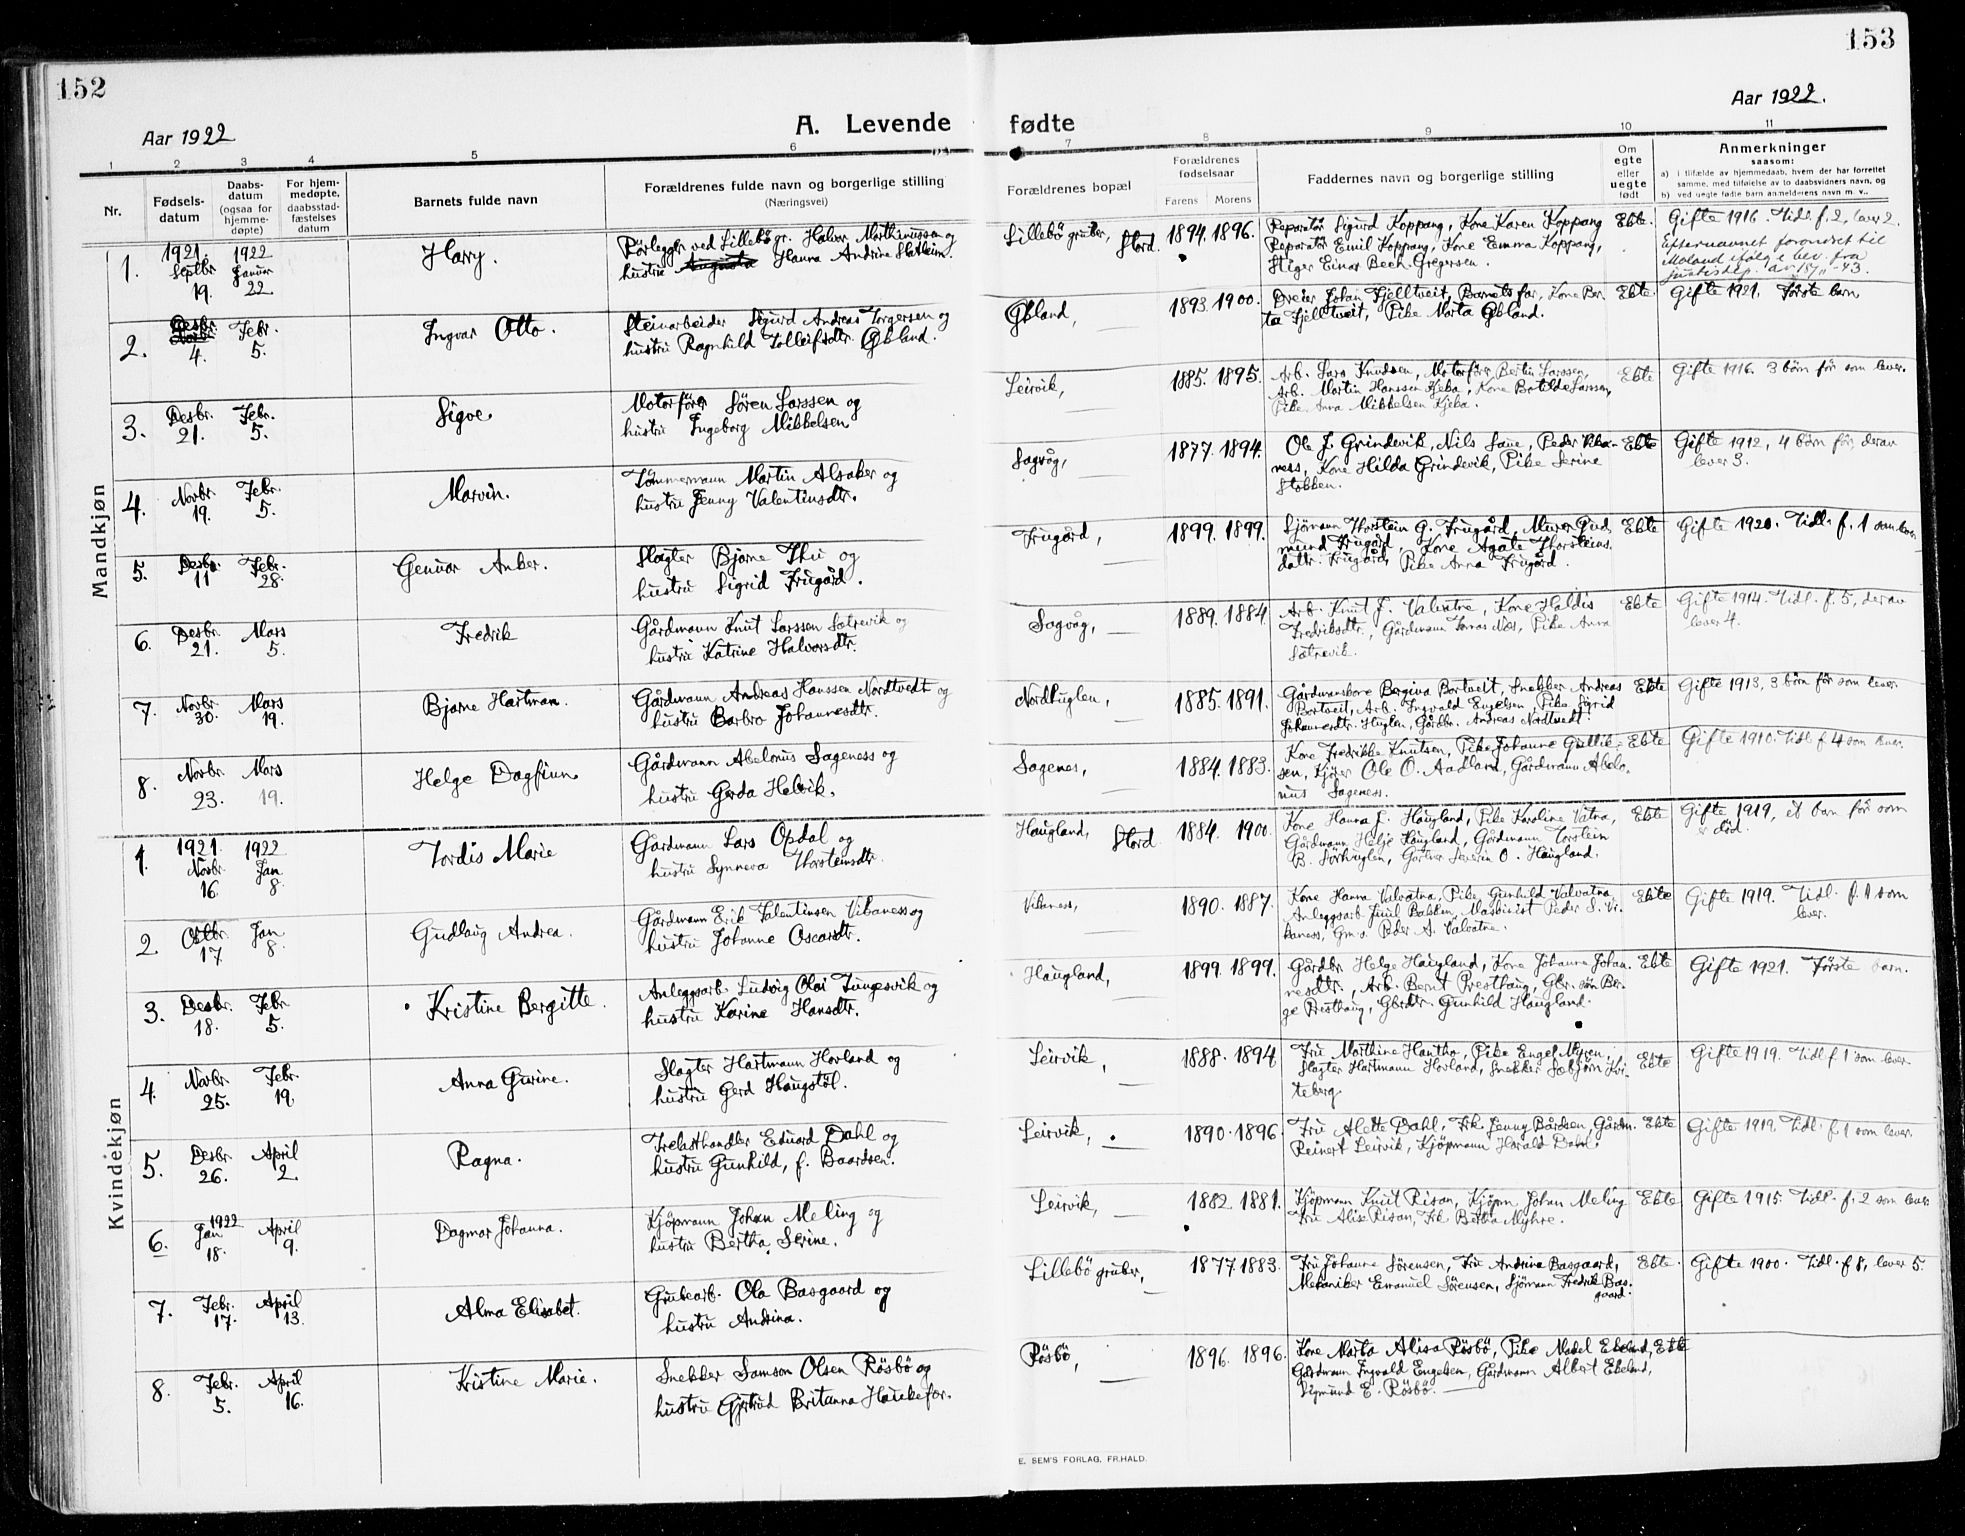 152
Aar 1922
A. Levende
1 2 3 4 5 6
Nr.
Fødsels-
datum
Daabs-
datum
(ogsaa for
hjemme-
døpte)
For hjem-
medøpte,
daabsstad-
fæstelses
datum
Barnets fulde navn
Forældrenes fulde navn og borgerlige stilling
(Næringsvei)
Mandkjøn
1. 1921 Septbr. 19. 1922 Januar 22 Harry. Rörlegger ved Lillebö gr. Halvor Marthinussen og
hustru Augusta Hanna Andrine
2. Desbr. 4. Febr. 5. Ingvar Otto. Steinarbeider Sigurd Andreas Torgersen og
hustru Ragnhild Tolleifsdtr. Öbland.
3. Desbr. 21. Febr. 5. Sigve Motorförer Sören Larssen og
hustru Ingeborg Mikkelsen
4. Novbr. 19. Febr. 5. Marvin. Tömmermann Martin Alsaker og
hustru Jenny Valentinsdtr.
5. Desbr. 11 Febr. 28. Gunnar Anker. Slagter Bjarne Thu og
hustru Sigrid Frugård.
6. Desbr. 21. Mars 5. Fredrik Gårdmann Knut Larssen Sætrevik og
hustru Katrine Halvorsdtr.
7. Novbr. 30. Mars 19. Bjarne Hartman. Gårdmann Andreas Hanssen Nordtvedt og
hustru Barbro Johannesdtr.
8. Novbr. 23. Mars 19. Helge Dagfinn Gårdmann Abelonus Sageness og
hustru Gerda Helvik.
Kvindekjøn
1. 1921. Novbr. 16. 1922 Jan 8. Tordis Marie Gårdmann Lars Opdal og
hustru Synneva Thorsteinsdtr.
2. Octbr. 17 Jan 8. Gudlaug Andrea. Gårdmann Erik Valentinsen Vikaness og
hustru Johanne Oscarsdtr.
3. Desbr. 18. Febr 5. Kristine Bergitte. Anleggsarb. Ludvig Olai Tungesvik og
hustru Karine Hansdtr.
4. Novbr. 25. Febr. 19. Anna Gurine. Slagter Hartmann Hovland og
hustru Gerd Haugstöl.
5. Desbr. 26. April 2. Ragna. Trelasthandler Eduard Dahl og
hustru Gunhild, f. Baardsen.
6. 1922 Jan 18. April 9. Dagmar Johanna. Kjöpmann Johan Meling og
hustru Bertha Serine.
7. Febr. 17. April 13. Alma Elisabet. Grubearb. Ola Basgaard og
hustru Andrina.
8. Febr. 5. April 16. Kristine Marie. Snekker Samson Olsen Rösbö og
hustru Gjertrud Britanna Haukefær.
153
Aar 1922.
fødte
7 8 9 10 11
Forældrenes bopæl
Forældrenes
fødselsaar
Farens Morens
Faddernes navn og borgerlige stilling
Om
egte
eller
uegte
født
Anmerkninger
saasom:
a) i tilfælde av hjemmedaab, hvem der har forrettet
samme, med tilføielse av to daabsvidners navn, og
b) ved uegte fødte barn anmelderens navn m. v..
Lillebö gruber, Stord. 1894. 1896. Reparatör Sigurd Koppang, Kone Karen Koppang Ekte. Gifte 1916. Tidl. f. 2, lever 2.
Reparatör Emil Koppang, Kone Emma Koppang,
Stiger Einar Bech-Gregersen.
Efternavnet forandret til
Moland ifølge bev. fra
justisdep. av
Öbland, — 1893. 1900. Dreier Johan Fjelltveit, Barnets far, Kone Ber- Ekte. Gifte 1921. Første barn
ta Fjelltveit, Pike Marta Öbland.
Leirvik, — 1885. 1895. Arb. Lars Knudsen, Motorfører Bertin Larssen, Ekte Gifte 1916. 3 börn för som lever.
Arb. Martin Hanssen Kjeka, Kone Botilde Larssen,
Pike Anna Mikkelsen Kjeka.
Sagvåg, — 1877. 1894. Ole J. Grindevik, Nils Laue, Peder Vika- Ekte Gifte 1912, 4 börn för, derav
ness, Kone Hilda Grindevik, Pike Serine lever 3.
Stokken.
Frugård, — 1899. 1899. Sjömann Thorstein G. Frugård, Murer Gud- Ekte Gifte 1920. Tidl. f. 1 som lever.
mund Frugård, Kone Agate Thorsteins-
dattr. Frugård, Pike Anna Frugård.
Sagvåg, — 1889. 1884. Arb. Knut J. Valvatne, Kone Haldis Ekte Gifte 1914. Tidl. f. 5, derav
Fredriksdtr., Gårdmann Jonas Næs, Pike Anna lever 4.
Sætrevik.
Nordhuglen, — 1885. 1891. Gårdmanskone Bergina Bortveit, Snekker Andreas Ekte Gifte 1913, 3 börn för som lever.
Bortveit, Arb. Ingvald Engelsen, Pike Sigrid
Johannesdtr. Huglen, Gårdbr. Andreas Nordtvedt.
Sagenes, — 1884. 1883. Kone Fredrikke Knutsen, Pike Johanne Gullik- Ekte Gifte 1910. Tidl. f. 4 som lever.
sen, Kjörer Ole O. Aadland, Gårdmann Abelo-
nus Sageness.
Haugland, Stord 1884. 1900. Kone Hanna J. Haugland, Pike Karoline Vatna, Ekte Gifte 1919, et barn för som
Gårdmann Helje Haugland, Gårdmann Torstein er död.
B. Sørhuglen, Gartner Severin O. Haugland.
Vikaness, — 1890. 1887. Kone Hanna Valvatna, Pike Gunhild Valvatna Ekte Gifte 1919. Tidl. f. 1 som
Anleggsarb. Juul Bakken, Maskinist Peder S. Vi- lever.
kaness, Gm.s. Peder A. Valvatne.
Haugland, — 1899. 1899. Gårdbr. Helge Haugland, Kone Johanne Johan- Ekte Gifte 1921. Første barn.
nesdtr., Arb. Bernt Presthaug, Gbr. sön Bør-
ge Presthaug, Gbrdtr. Gunhild Haugland.
Leirvik, — 1888. 1894 Fru Marthine Hantho, Pike Engel Myren, Ekte Gifte 1919. Tidl f. 1 som lever.
Slagter Hartmann Hovland, Snekker Sæbjörn Kvi-
teberg
Leirvik, — 1890. 1896. Fru Alette Dahl, Frk. Jenny Bårdsen, Gårdm. Ekte Gifte 1919. Tidl. f. 1 som lever.
Reinert Leirvik, Kjöpmann Harald Dahl
Leirvik, — 1882. 1881. Kjöpmann Knut Risan, Kjöpm. Johan Meling Ekte Gifte 1915. Tidl. f. 2 som lever.
Fru Alise Risan, Frk Bertha Myhre.
Lillebö gruber, — 1877. 1883. Fru Johanne Sörensen, Fru Andrina Basgaard, Ekte. Gifte 1900. Tidl. f 8, lever 5.
Mekaniker Emanuel Sörensen, Sjömann Fredrik Bas-
gaard.
Rösbö, — 1896. 1896. Kone Marta Alisa Rösbö, Pike Madel Ekeland, Ekte
Gårdmann Ingvald Engelsen, Gårdmann Albert Ekeland,
Sigmund E. Rösbö.
E. SEM'S FORLAG, FR.HALD.